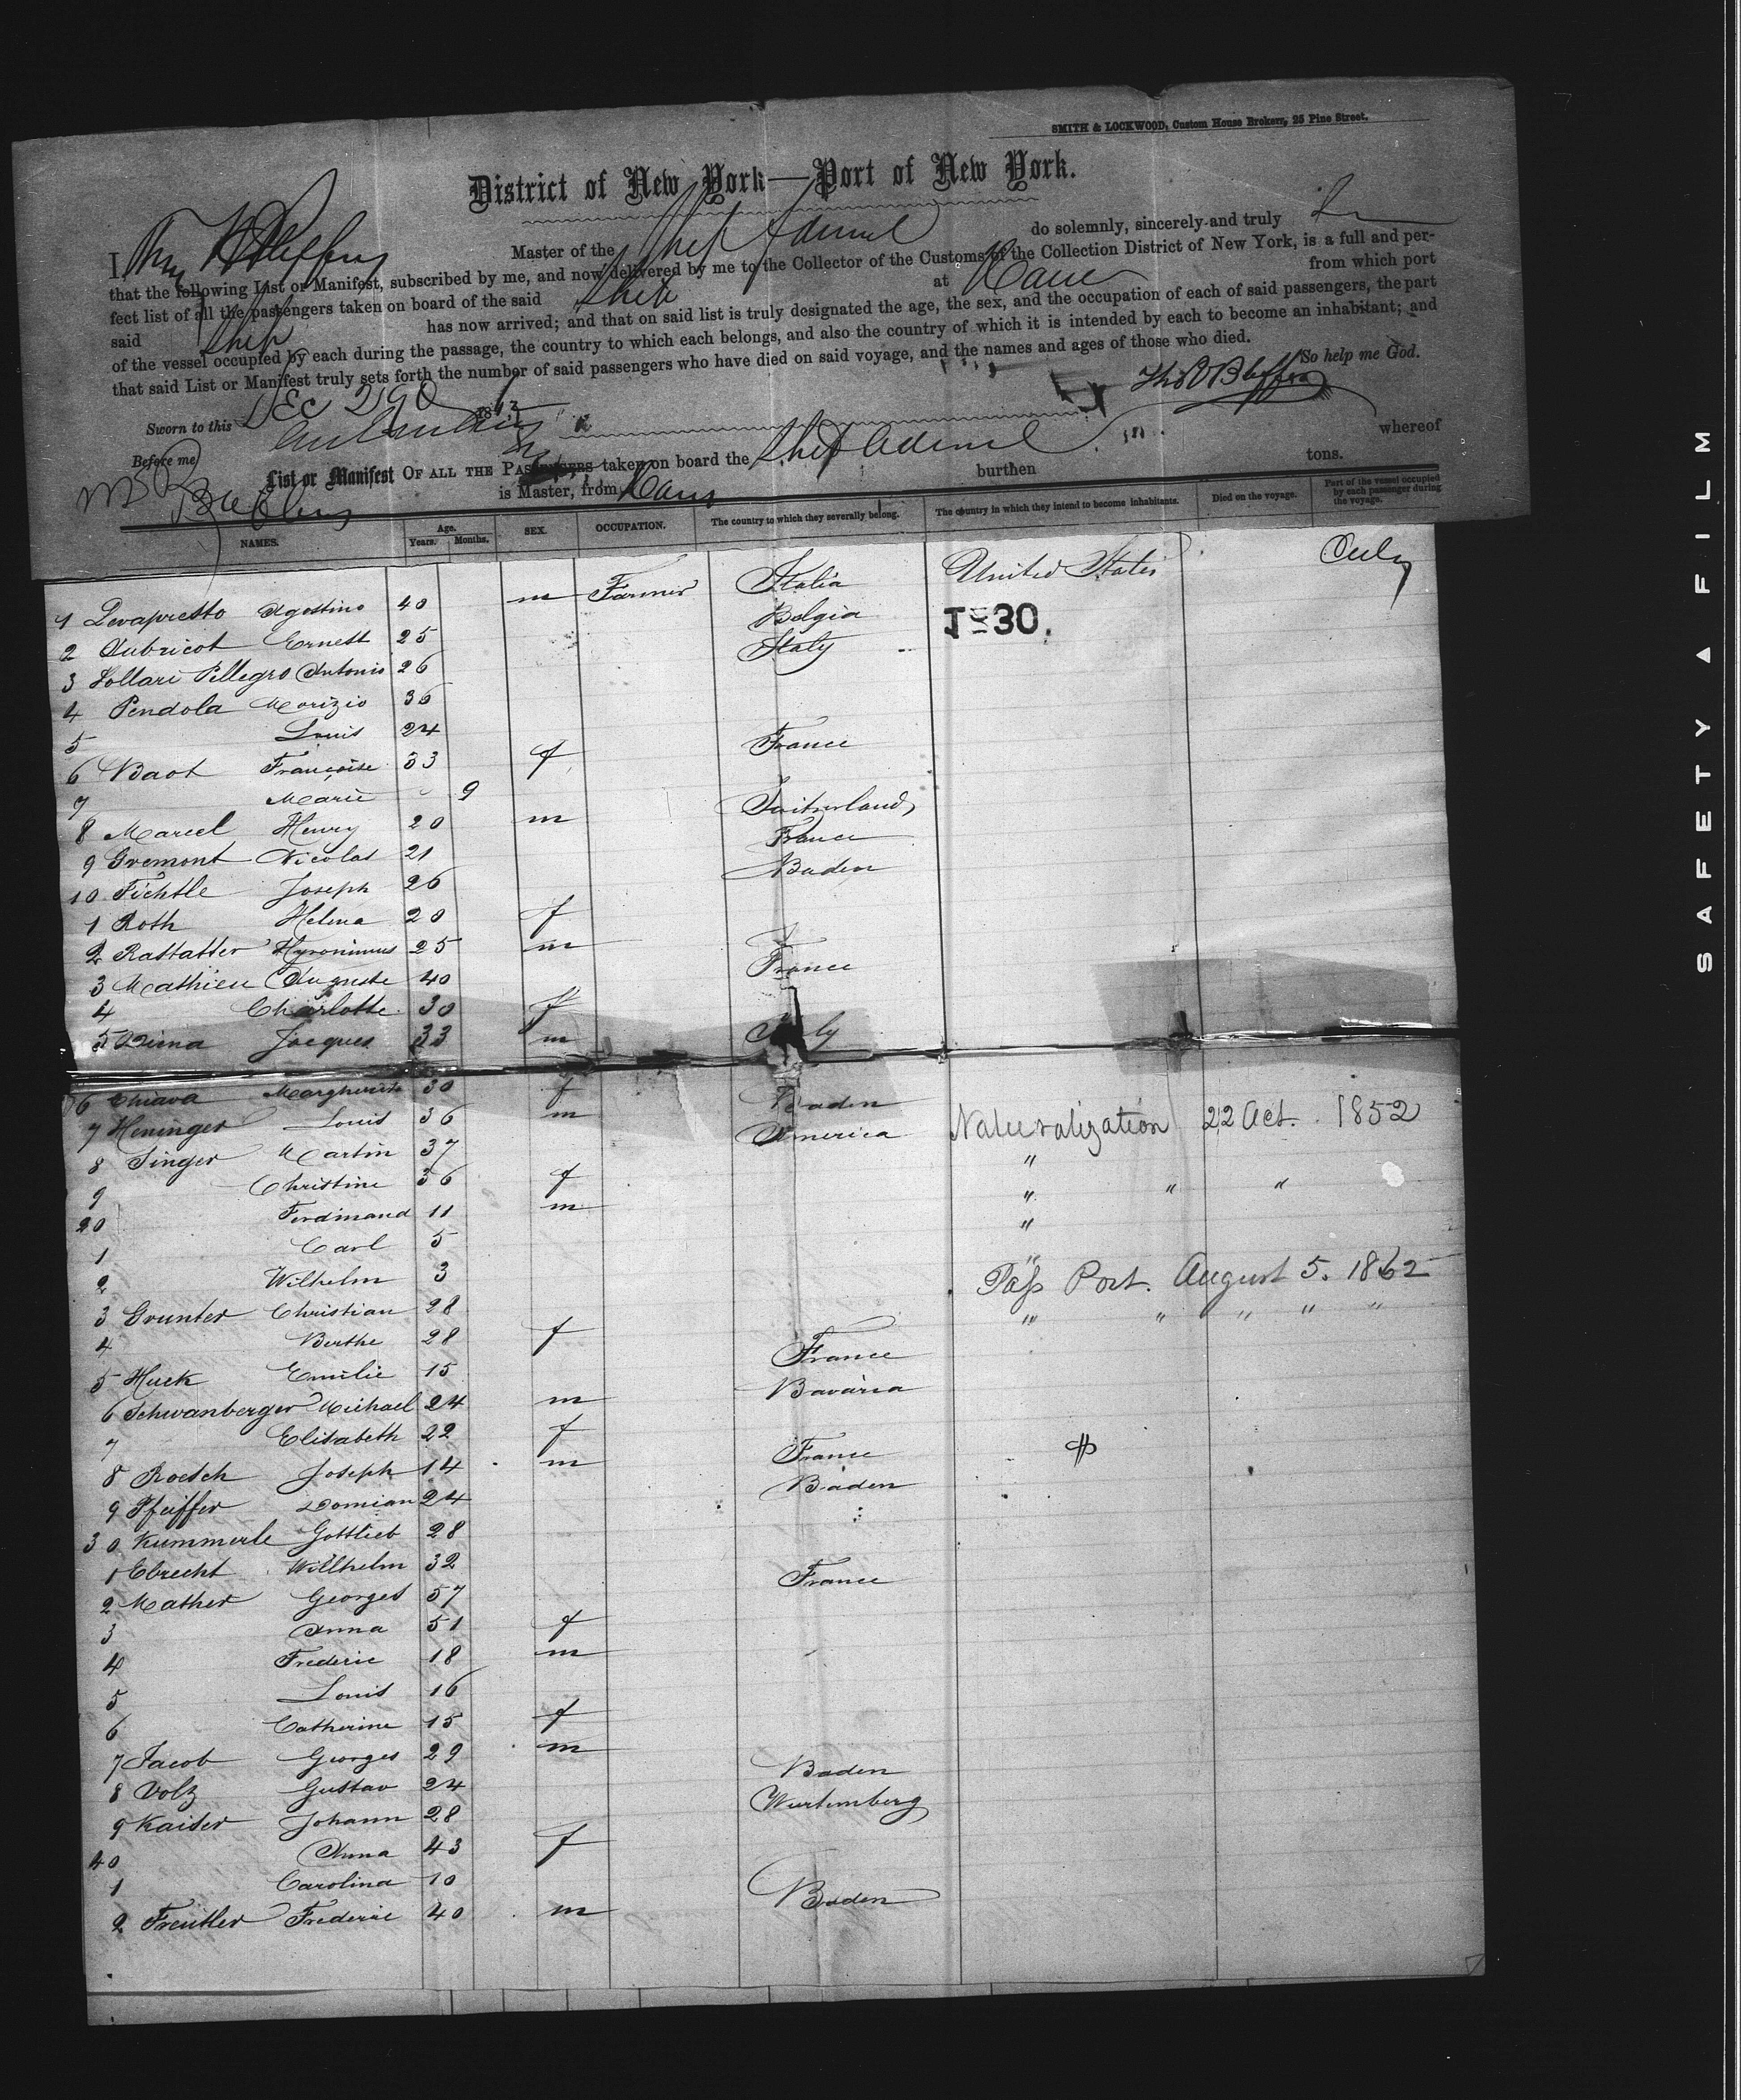 SMITH & LOCKWOOD, Custom House Brokers, 25 Pine Street.
District of New York—Port of New York.
I Master of the Ship do solemnly, sincerely and truly
that the following List or Manifest, subscribed by me, and now delivered by me to the Collector of the Customs of the Collection District of New York, is a full and per-
fect list of all the passengers taken on board of the said Ship at from which port
said Ship has now arrived; and that on said list is truly designated the age, the sex, and the occupation of each of said passengers, the part
of the vessel occupied by each during the passage, the country to which each belongs, and also the country of which it is intended by each to become an inhabitant; and
that said List or Manifest truly sets forth the number of said passengers who have died on said voyage, and the names and ages of those who died.
So help me God.
Sworn to this Dec 186
Before me
List or Manifest OF ALL THE PASSENGERS taken on board the Ship whereof
is Master, from burthen tons.
NAMES. Age. Years. Months. SEX. OCCUPATION. The country to which they severally belong. The country in which they intend to become inhabitants. Died on the voyage. Part of the vessel occupied by each passenger during the voyage.
1 Levapresto Agostino 40 m Farmer Italia United States
2 Aubricot Ernest 25 Belgia
3 Pellegro Antonio 26 Italy
30.
4 Pendola Morizio 36
5 Louis 24
6 Baot Françoise 33 f France
7 Marie 9
8 Marcel Henry 20 m Switzerland
9 Gremont Nicolas 21 France
10 Fichtle Joseph 26 Baden
1 Roth Helena 20 f
2 Rastatter Hyronimus 25 m
3 Mathieu Auguste 40 France
4 Charlotte 30 f
5 Jacques 33 m Italy
6 Chiava Margherita 30 f
7 Heninger Louis 36 m Baden
8 Singer Martin 37 America Naturalization 22 Oct. 1852
9 Christine 36 f "
20 Ferdinand 11 m " " "
1 Carl 5 "
2 Wilhelm 3 "
3 Grunter Christian 28 Pass Port. August 5. 1862
4 Berthe 28 f " " " " "
5 Huck Emilie 15 France
6 Schwanberger Michael 24 m Bavaria
7 Elisabeth 22 f
8 Roesch Joseph 14 m France
9 Pfeiffer Domian 24 Baden
30 Kummerle Gottlieb 28
1 Ebrecht Willhelm 32
2 Mather Georges 57 France
3 Anna 51 f
4 Frederic 18 m
5 Louis 16
6 Catherine 15 f
7 Jacob Georges 29 m
8 Volz Gustav 24 Baden
9 Kaiser Johann 28 Wurtemberg
40 Anna 43 f
1 Carolina 10
2 Frederic 40 m Baden
SAFETY ▲ FILM